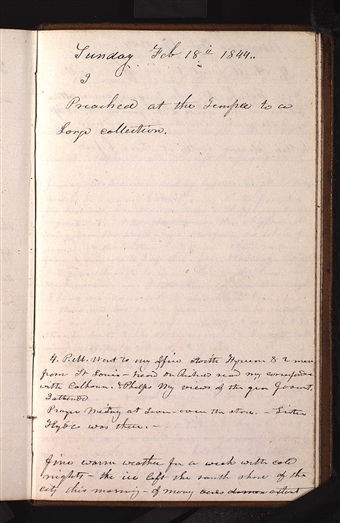 Sunday Feb 18th 1844.
I
Preached at the Temple to a
large collection.
4. P.M. Went to my office with Hyrum & 2 men
from St Louis - read my correspondence
with Calhoun. & Phelps My views of the gen Govmt.
Prayer Meeting at over the store. - Sister
Hyde was there. -
fine warm weather for a week with cold
nights - the ice left the south shore of the
city this morning - of many acres